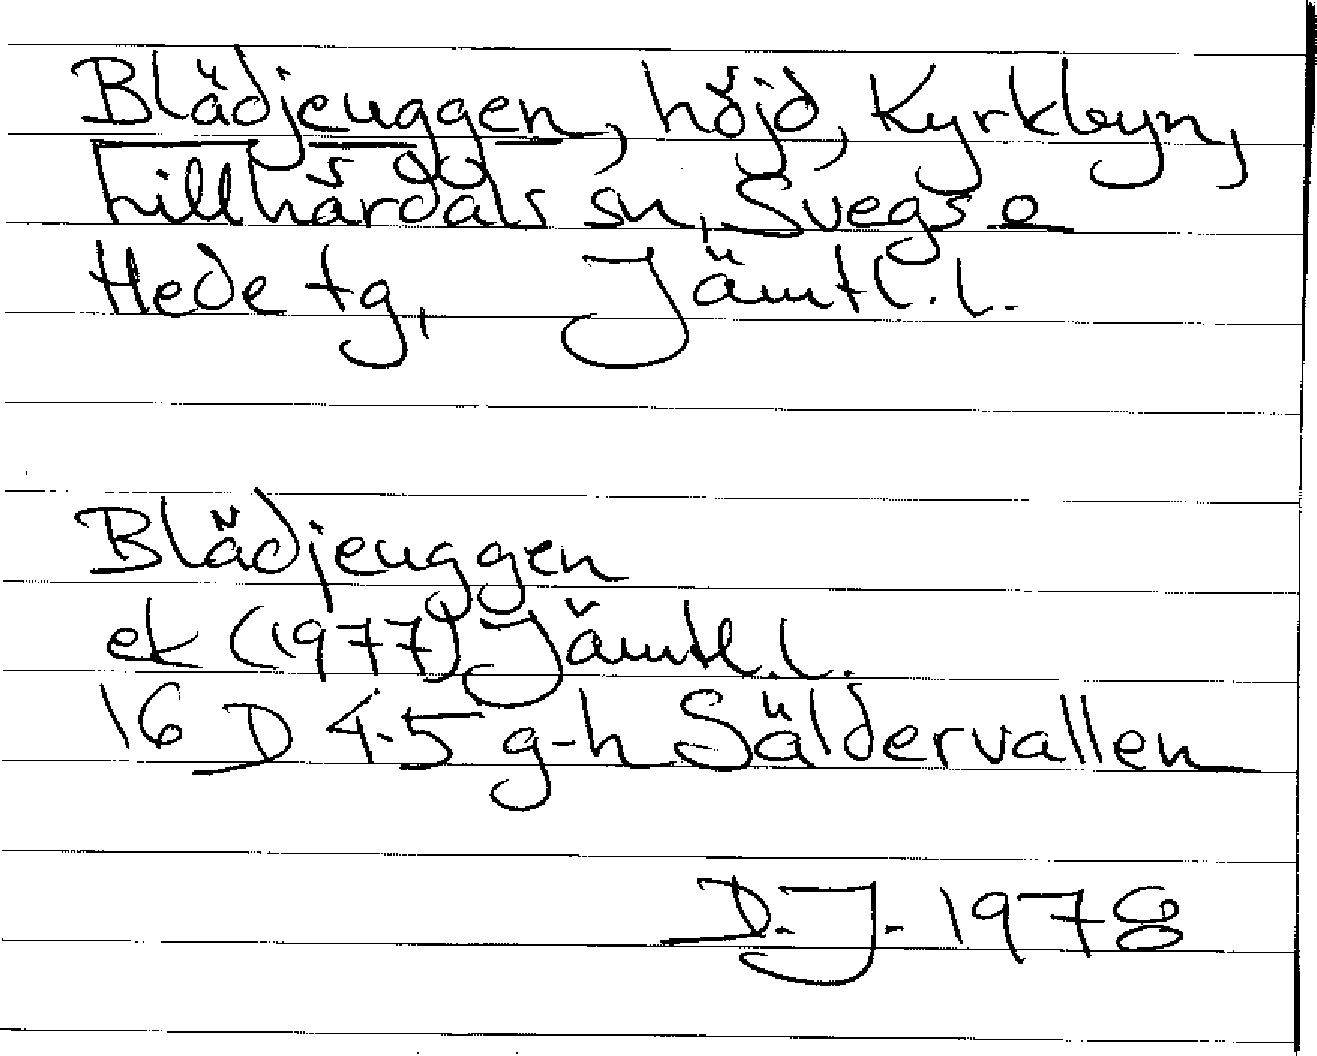 Blädjeuggen, höjd, Kyrkbyn,
Lillhärdals sn, Svegs o
Hede tg, Jämtl. l.
Blädjeuggen
ek (1977) Jämtl. l.
16 D 4-5 g-h Säldervallen
D. J. 1978